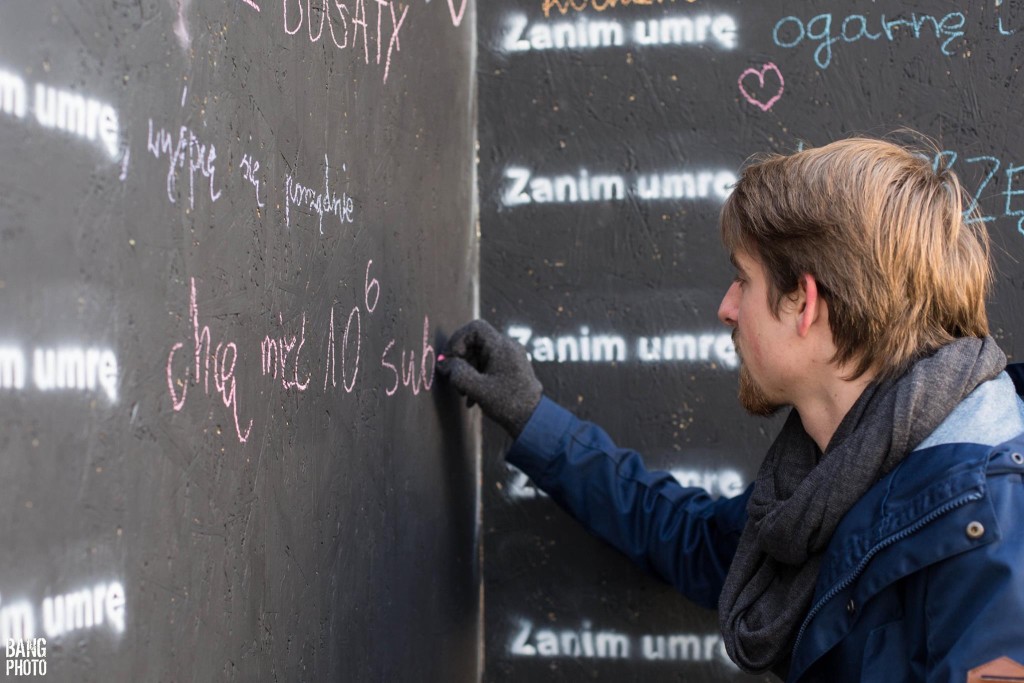 BOGATY
m umrę
, wyśpię się porządnie
chcą mieć 10⁶ sub
m umrę
m umrę
Zanim umrę
ogarnę
Zanim umrę
Zanim umrę
Zanim umrę
Zanim umrę
BANG
PHOTO